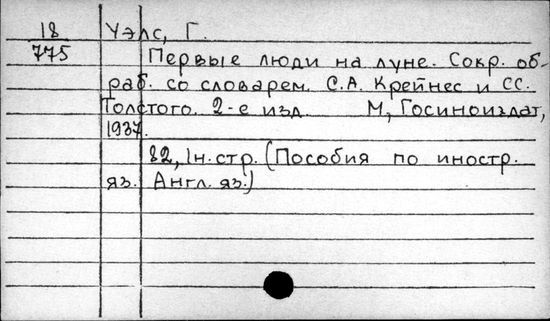 18 Уэлс, Г.
775 Первые люди на луне. Сокр. об-
раб. со словарем. С.А. Крейнес и СС.
Толстого. 2-е изд. М., Госиноиздат,
1937.
82, 1н. стр. (Пособия по иностр.
яз. Англ. яз.)